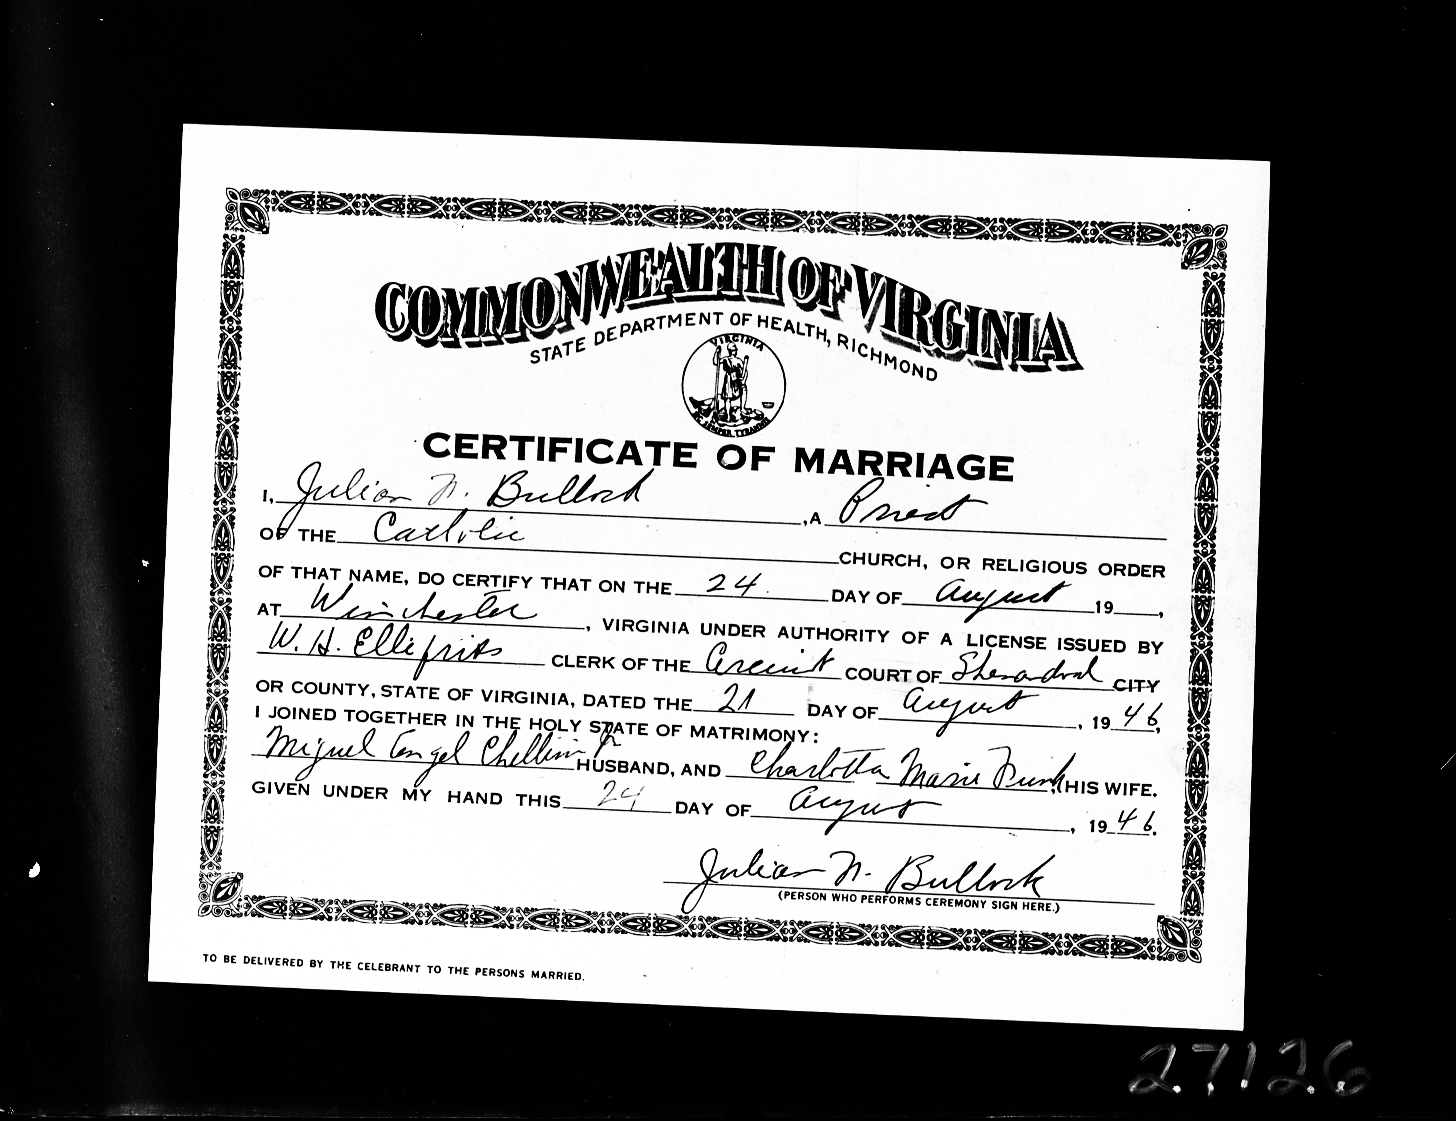 COMMONWEALTH OF VIRGINIA
STATE DEPARTMENT OF HEALTH, RICHMOND
VIRGINIA
SIC SEMPER TYRANNIS
CERTIFICATE OF MARRIAGE
I, Julian N. Bullock, A Priest
OF THE Catholic CHURCH, OR RELIGIOUS ORDER
OF THAT NAME, DO CERTIFY THAT ON THE 24 DAY OF August 19 ,
AT Winchester, VIRGINIA UNDER AUTHORITY OF A LICENSE ISSUED BY
W. H. Ellifrits CLERK OF THE Circuit COURT OF Shenandoah CITY
OR COUNTY, STATE OF VIRGINIA, DATED THE 21 DAY OF August, 1946,
I JOINED TOGETHER IN THE HOLY STATE OF MATRIMONY:
Miguel Angel Jr HUSBAND, AND Charlotta Marie Funk, HIS WIFE.
GIVEN UNDER MY HAND THIS 24 DAY OF August, 1946.
Julian N. Bullock
(PERSON WHO PERFORMS CEREMONY SIGN HERE.)
TO BE DELIVERED BY THE CELEBRANT TO THE PERSONS MARRIED.
27126